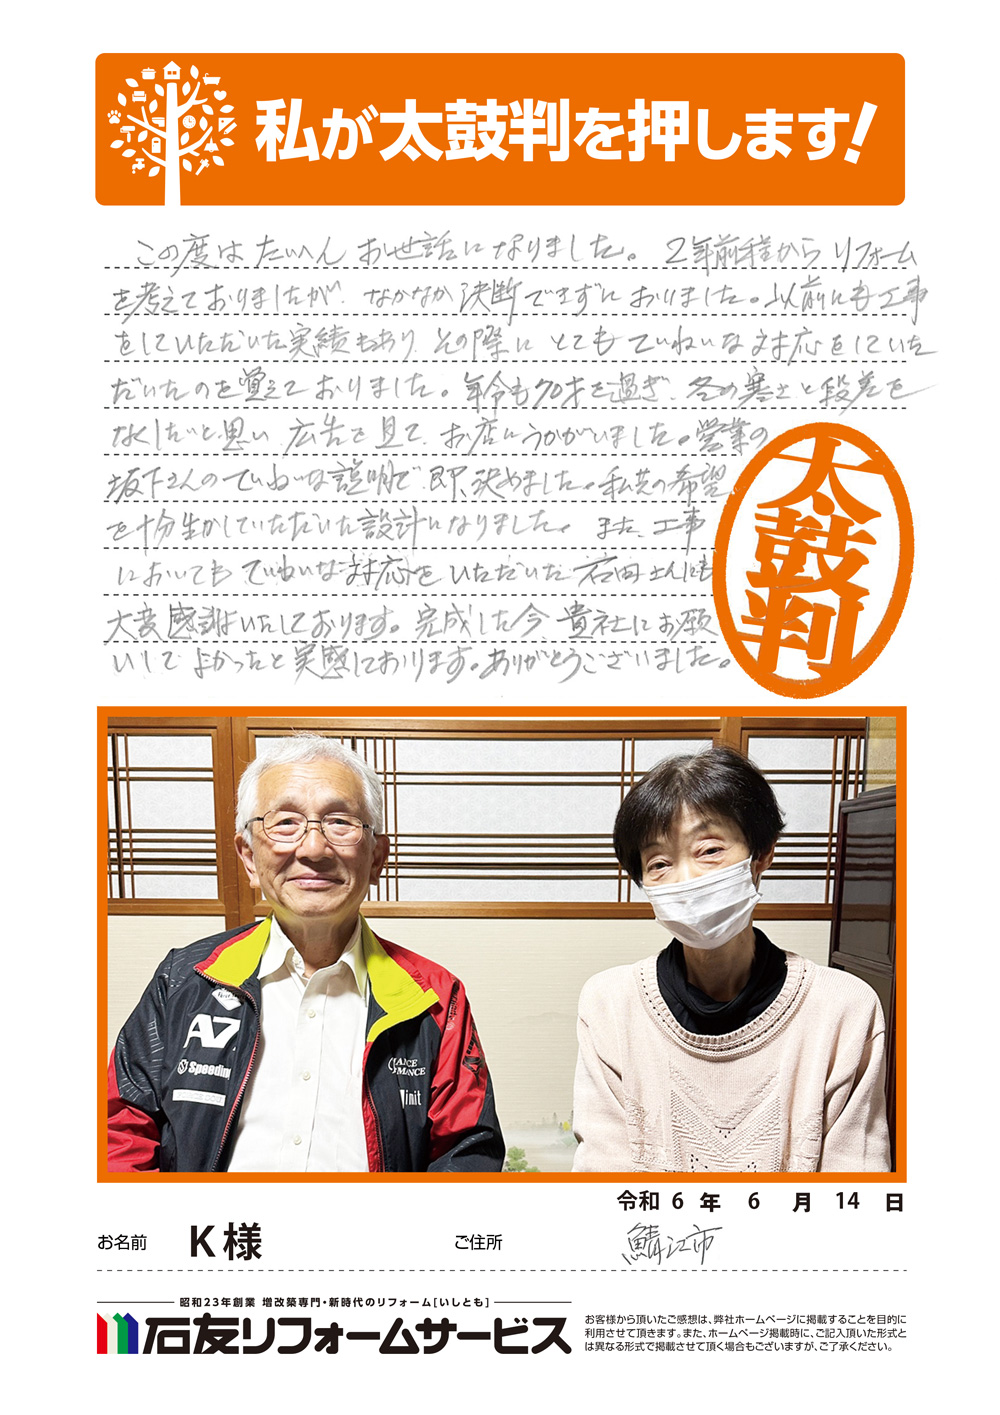 私が太鼓判を押します!
この度は たいへん お世話になりました。 2年前程から リフォーム
を考えておりましたが、なかなか決断できずにおりました。以前にも工事
をしていただいた実績もあり その際に とても ていねいな対応をしていた
だいたのを覚えておりました。年令も70才を過ぎ、冬の寒さと段差を
なくしたいと思い 広告を見て、お店にうかがいました。営業の
坂下さんの ていねいな説明で 即、決めました。私共の希望
を十分生かしていただいた設計になりました。 また、工事
においても ていねいな対応を いただいた 石田さんにも
大変感謝いたしております。完成した今、貴社にお願
いして よかったと実感しております。ありがとうございました。
太鼓判
A7
Speedin
init
令和 6 年 6 月 14 日
お名前 K様 ご住所 鯖江市
昭和23年創業 増改築専門・新時代のリフォーム[いしとも]
石友リフォームサービス
お客様から頂いたご感想は、弊社ホームページに掲載することを目的に
利用させて頂きます。また、ホームページ掲載時に、ご記入頂いた形式と
は異なる形式で掲載させて頂く場合もございますが、ご了承ください。